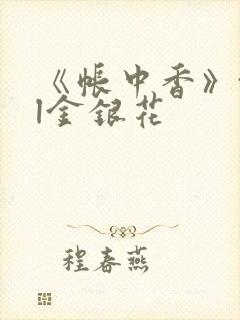 《帐中香》
l金银花
程春燕